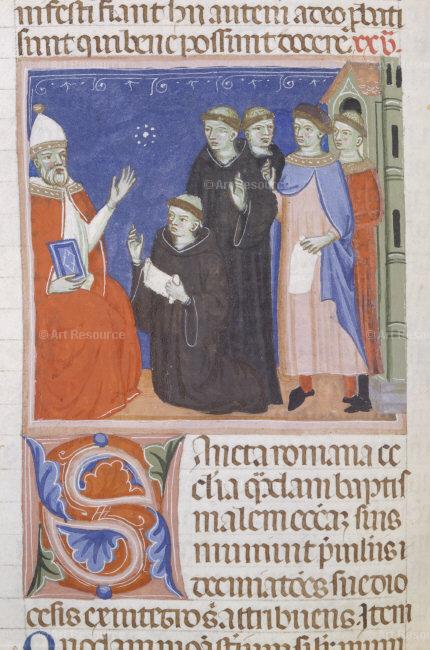 infesti fiant hii autem adeo pbati
sunt qui bene possunt docere. xxv
© Art Resource
© Art Resource
© Art Resource
© Art Resource
Sancta romana ec
clia qdam baptis
malem eccaz suis
muniuit priuliis ⁊
decimatões sue dio
cesis ex integro attribuens. Item